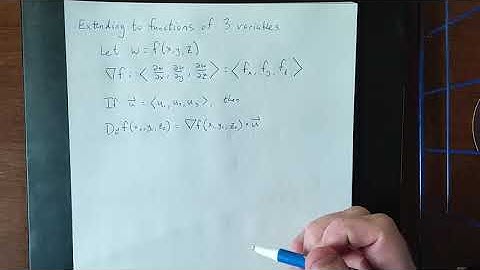 Extending to functions of 3 variables
Let w = f(x, y, z)
∇f = ⟨∂w/∂x, ∂w/∂y, ∂w/∂z⟩ = ⟨fx, fy, fz⟩
If u⃗ = ⟨u₁, u₂, u₃⟩, then
Du⃗ f(x₀, y₀, z₀) = ∇f(x₀, y₀, z₀) • u⃗